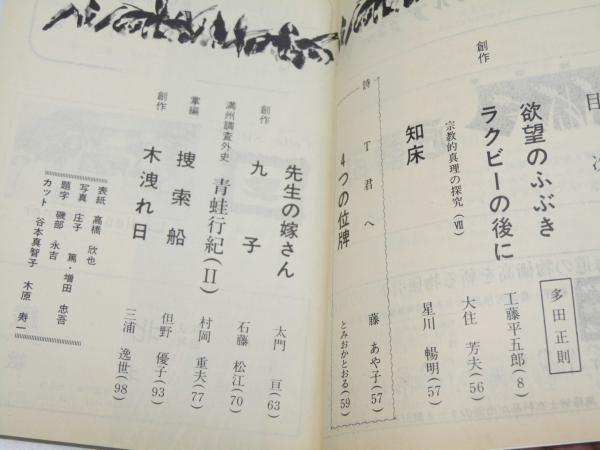 目次
創作
欲望のふぶき
多田正則
ラクビーの後に
工藤平五郎(8)
宗教的真理の探究(Ⅶ)
大住 芳夫(56)
知床
星川 暢明(57)
詩 T君へ
藤 あや子(57)
4つの位牌
とみおかとおる(59)
先生の嫁さん
太門 亘(63)
創作 九子
石藤 松江(70)
満州調査外史 青蛙行紀(II)
村岡 重夫(77)
掌編 捜索船
但野 優子(93)
創作 木洩れ日
三浦 逸世(98)
表紙 高橋 欣也
写真 庄子 篤・増田 忠吾
題字 磯部 永吉
カット 谷本真智子 木原 寿一